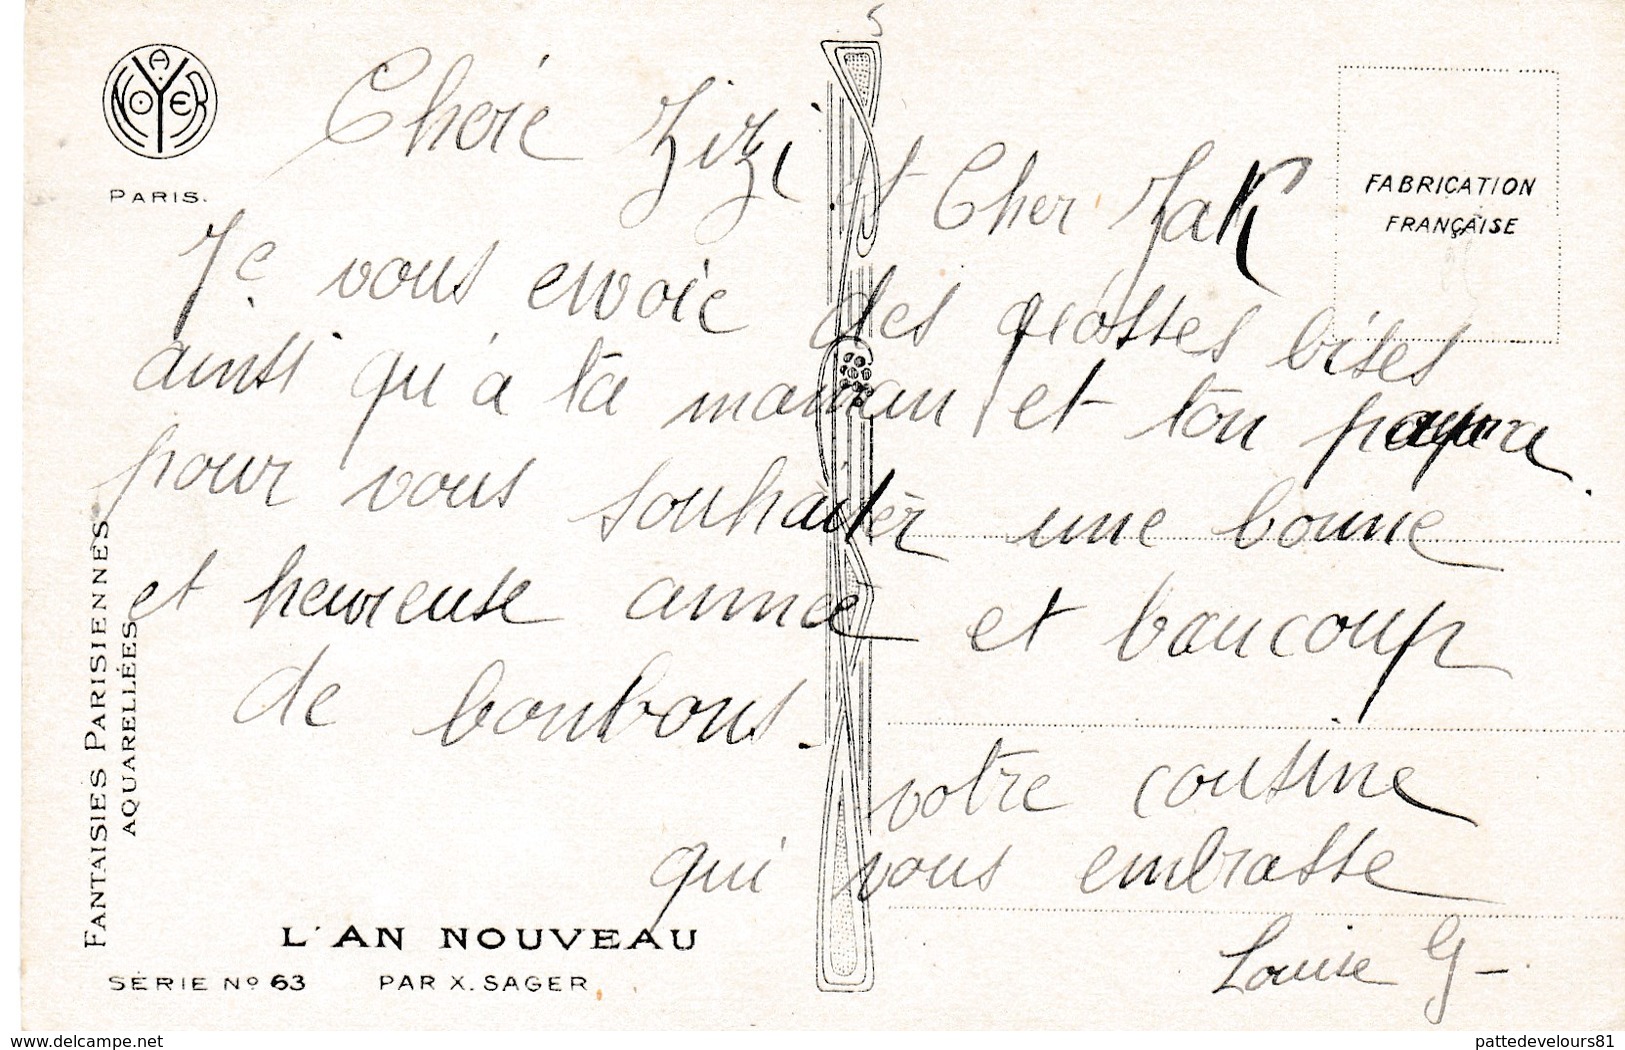 A. NOYER
PARIS.
FABRICATION
FRANÇAISE
Cherie Zizi et Cher Jak
Je vous envoie des grosses bises
ainsi qu'à ta maman et ton papa
pour vous souhaiter une bonne
et heureuse année et baucoup
de bonbons.
votre cousine
qui vous embrasse
Louise G-
FANTAISIES PARISIENNES
AQUARELLÉES
L'AN NOUVEAU
SÉRIE No 63 PAR X. SAGER
www.delcampe.net
pattedevelours81